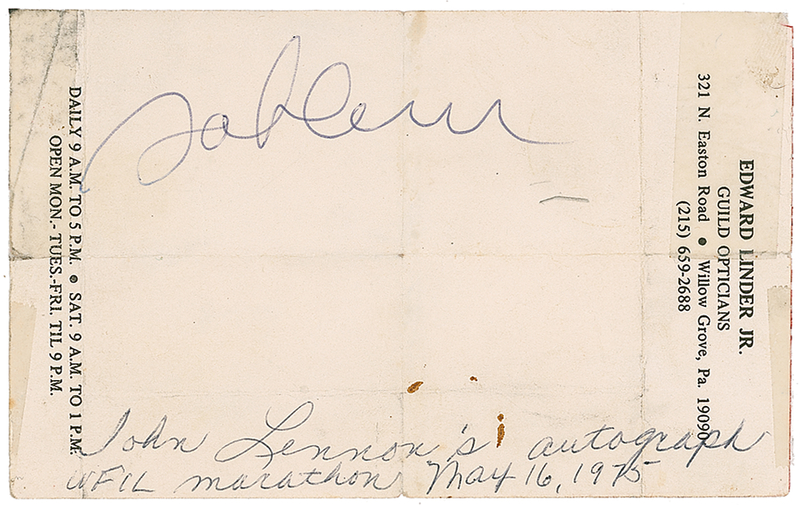 EDWARD LINDER JR.
GUILD OPTICIANS
321 N. Easton Road ● Willow Grove, Pa. 19090
(215) 659-2688
DAILY 9 A.M. TO 5 P.M. ● SAT. 9 A.M. TO 1 P.M.
OPEN MON.- TUES.-FRI. TIL 9 P.M.
John Lennon's autograph
WFIL marathon May 16, 1975